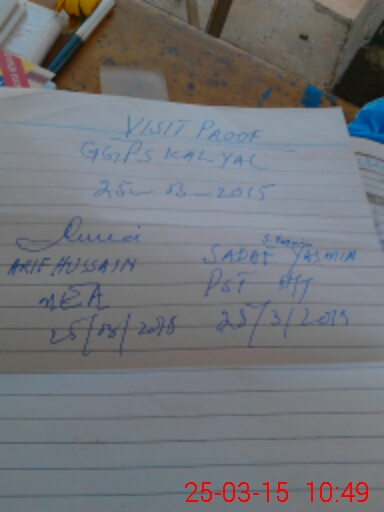 VISIT PROOF
GGPS KALYAL
25-03-2015
ARIF HUSSAIN
MEA
25/03/2015
S.Yasmin
SADAF YASMIN
PST
25/3/2015
25-03-15 10:49